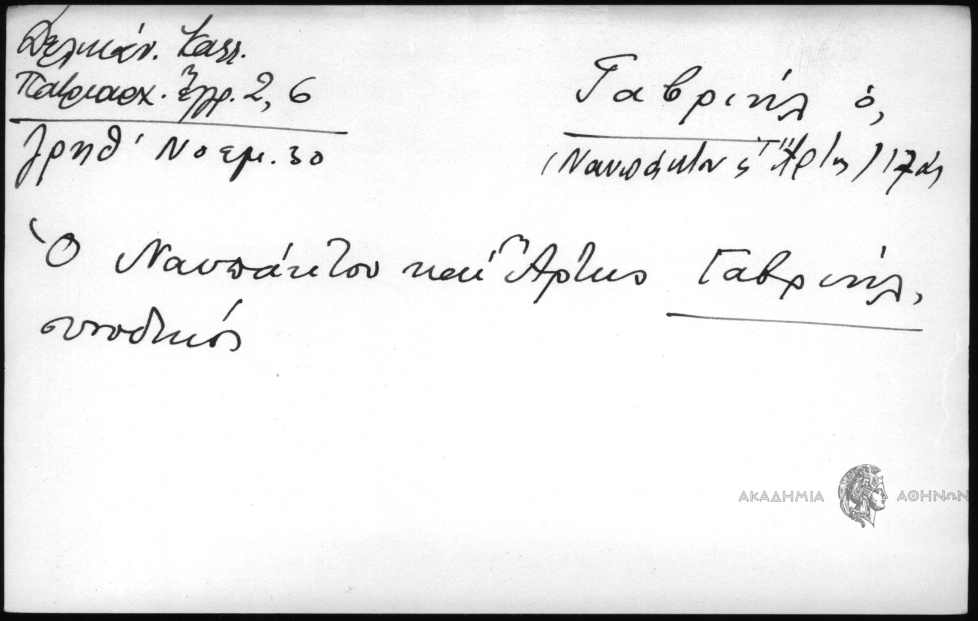 Δελικάν. Κατλ.
Πατριαρχ. Ἐγγρ. 2, 6
͵αχηθʹ Νοεμ. 30
Γαβριὴλ ὁ,
(Ναυπάκτου ϛ Ἄρτης) 17ος
Ὁ Ναυπάκτου καὶ Ἄρτης Γαβριὴλ,
συνοδικός
ΑΚΑΔΗΜΙΑ ΑΘΗΝΩΝ